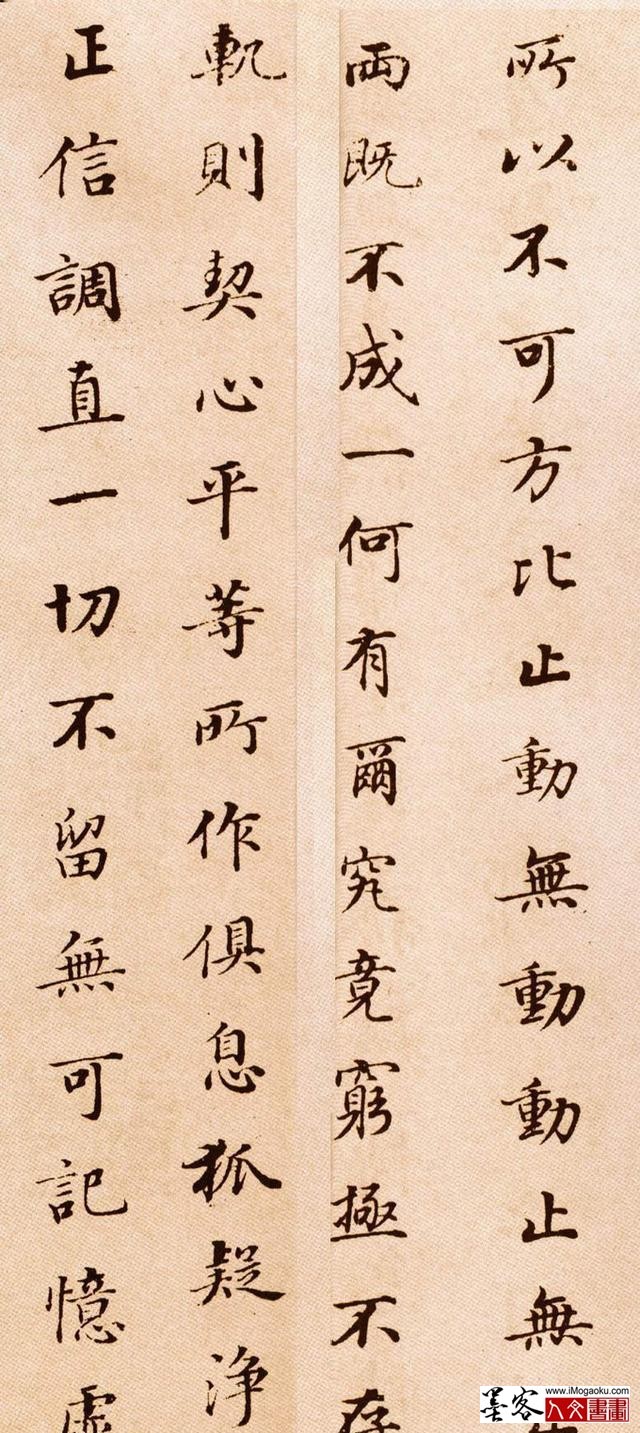 所以不可方比止動無動動止無
兩既不成一何有爾究竟窮極不存
軌則契心平等所作俱息狐疑淨
正信調直一切不留無可記憶虛
墨客
www.iMogaoku.com
人文書畫